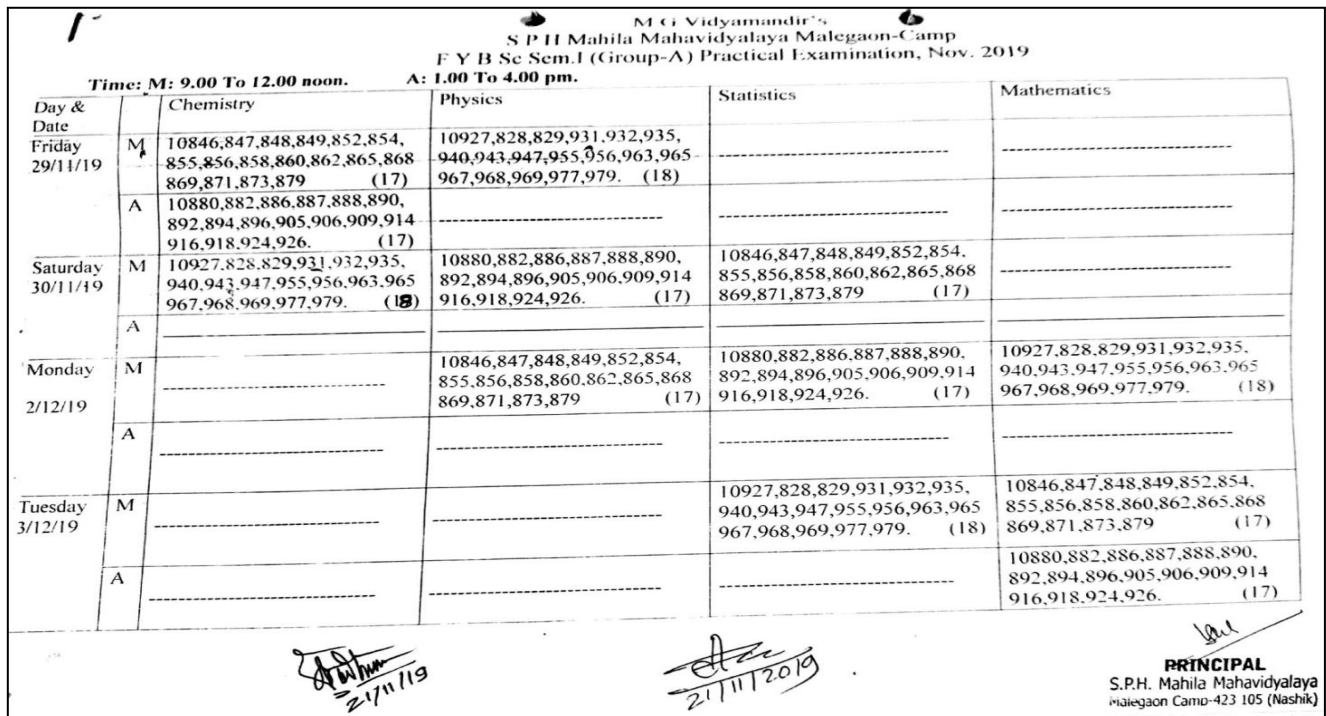 M G Vidyamandir's
S P H Mahila Mahavidyalaya Malegaon-Camp
F Y B Sc Sem.I (Group-A) Practical Examination, Nov. 2019
Time: M: 9.00 To 12.00 noon. A: 1.00 To 4.00 pm.
Day & Date
Chemistry
Physics
Statistics
Mathematics
Friday
29/11/19
M
10846,847,848,849,852,854,
855,856,858,860,862,865,868
869,871,873,879 (17)
10927,828,829,931,932,935,
940,943,947,955,956,963,965
967,968,969,977,979. (18)
A
10880,882,886,887,888,890,
892,894,896,905,906,909,914
916,918,924,926. (17)
Saturday
30/11/19
M
10927,828,829,931,932,935,
940,943,947,955,956,963,965
967,968,969,977,979. (18)
10880,882,886,887,888,890,
892,894,896,905,906,909,914
916,918,924,926. (17)
10846,847,848,849,852,854,
855,856,858,860,862,865,868
869,871,873,879 (17)
A
Monday
2/12/19
M
10846,847,848,849,852,854,
855,856,858,860,862,865,868
869,871,873,879 (17)
10880,882,886,887,888,890,
892,894,896,905,906,909,914
916,918,924,926. (17)
10927,828,829,931,932,935,
940,943,947,955,956,963,965
967,968,969,977,979. (18)
A
Tuesday
3/12/19
M
10927,828,829,931,932,935,
940,943,947,955,956,963,965
967,968,969,977,979. (18)
10846,847,848,849,852,854,
855,856,858,860,862,865,868
869,871,873,879 (17)
A
10880,882,886,887,888,890,
892,894,896,905,906,909,914
916,918,924,926. (17)
21/11/19
21/11/2019
PRINCIPAL
S.P.H. Mahila Mahavidyalaya
Malegaon Camp-423 105 (Nashik)